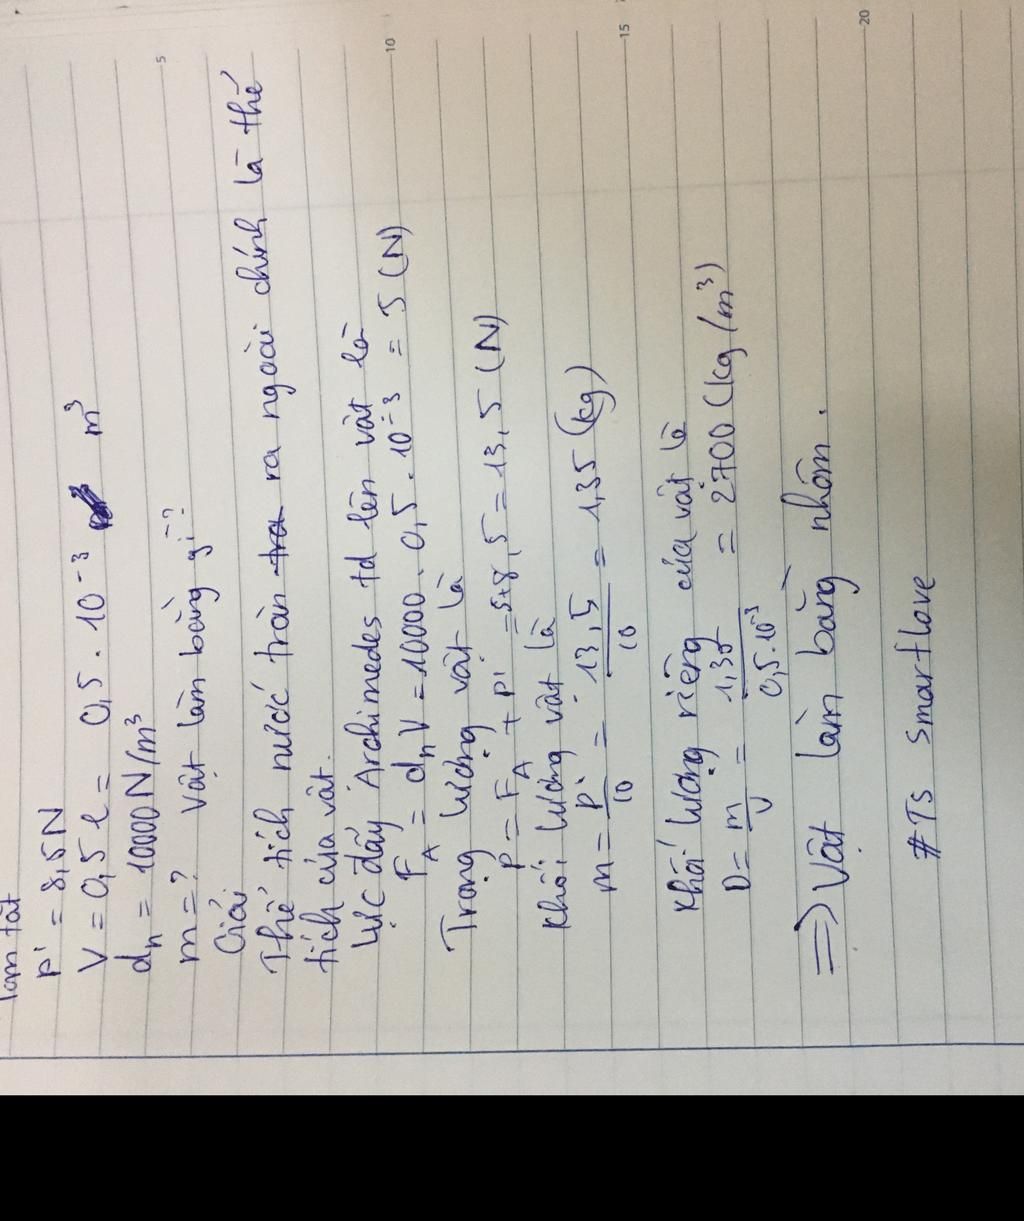 Tóm tắt
P' = 8,5N
V = 0,5l = 0,5 . 10⁻³ m³
dₙ = 10000N/m³
m = ? Vật làm bằng gì?
Giải
Thể tích nước tràn tra ra ngoài chính là thể
tích của vật.
Lực đẩy Archimedes td lên vật là
F_A = dₙV = 10000 . 0,5 . 10⁻³ = 5 (N)
Trọng lượng vật là
P = F_A + P' = 5+8,5 = 13,5 (N)
Khối lượng vật là
m = P/10 = 13,5/10 = 1,35 (kg)
Khối lượng riêng của vật là
D = m/V = 1,35/0,5.10⁻³ = 2700 (kg/m³)
=> Vật làm bằng nhôm.
#Ts smartlove
5
10
15
20